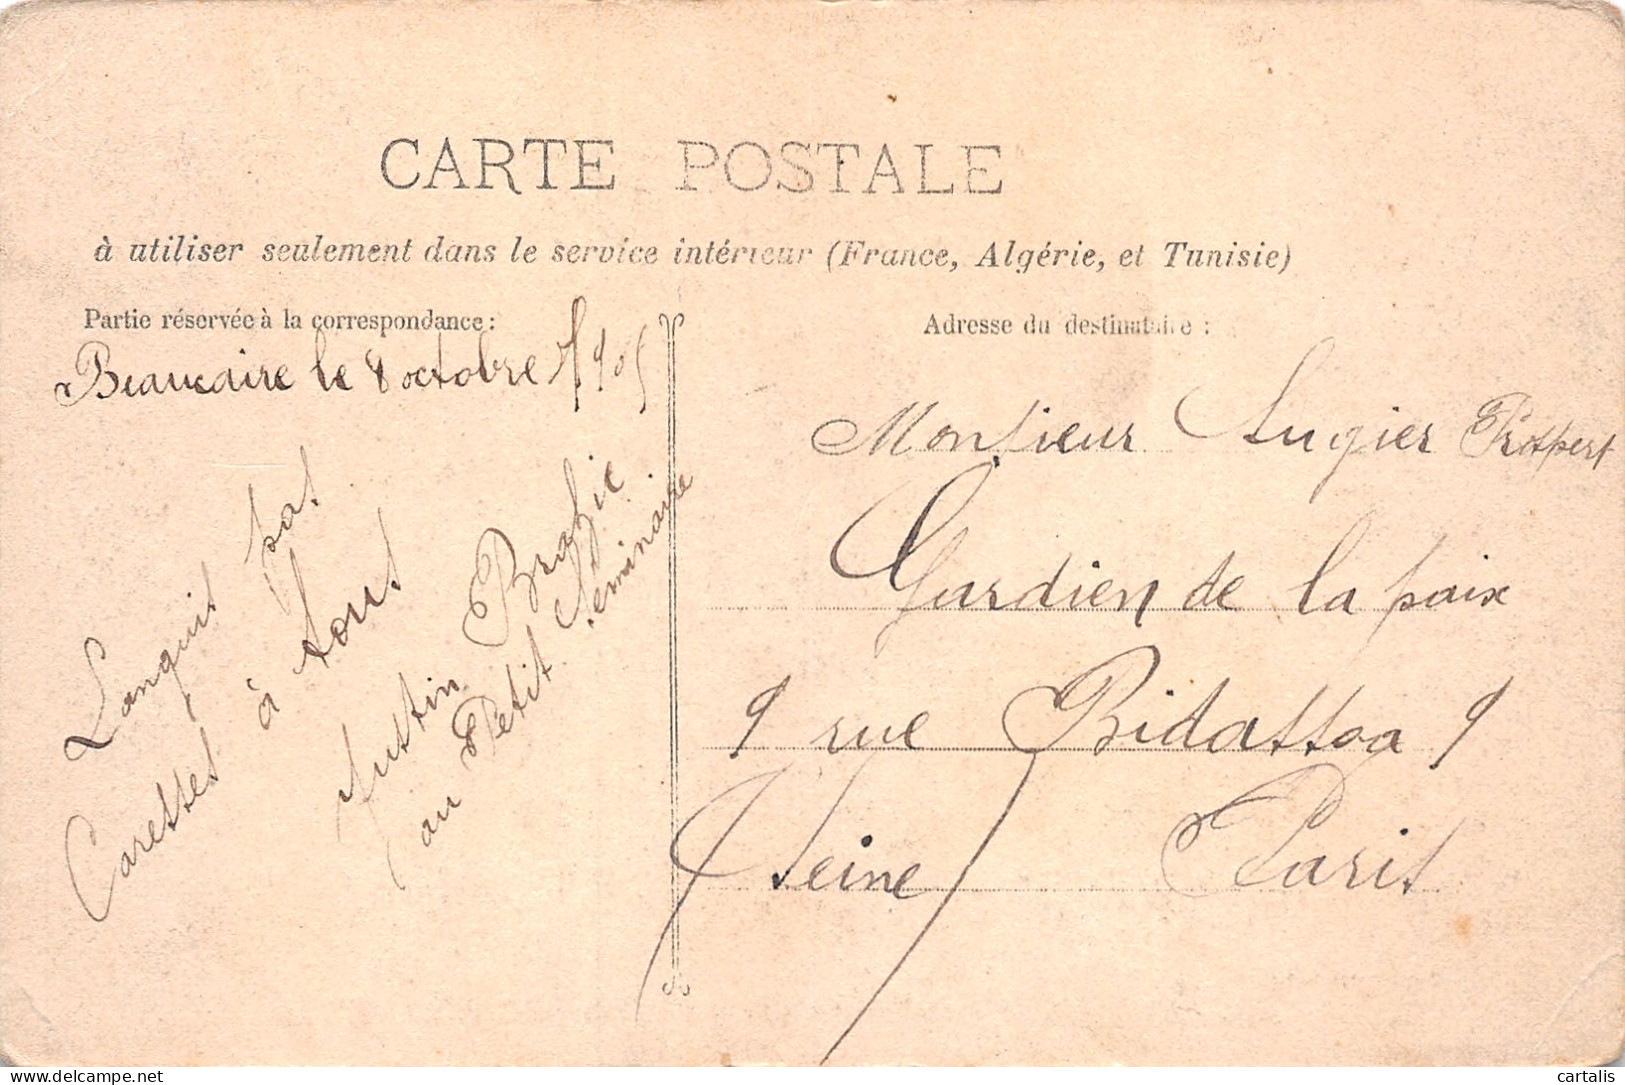 CARTE POSTALE
à utiliser seulement dans le service intérieur (France, Algérie, et Tunisie)
Partie réservée à la correspondance:
Beaucaire le 8 octobre 1905
Languit pas
Caresses à tous
Justin
au Petit Seminaire
Adresse du destinataire :
Monsieur Augier Prosper
Gardien de la paix
9 rue Bidassoa 9
Paris
(Seine)
cartalis
delcampe.net